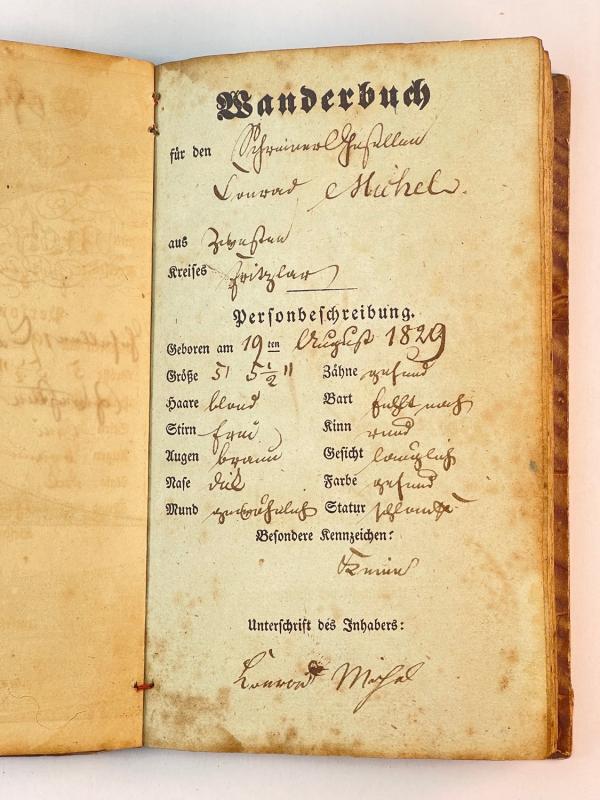 Wanderbuch
für den Schreiner Gesellen
Conrad Michel.
aus Zwesten
Kreises Fritzlar
Personbeschreibung.
Geboren am 19ten August 1829
Größe 5' 5 1/2" Zähne gesund
Haare blond Bart fehlt noch
Stirn frei Kinn rund
Augen braun Gesicht länglich
Nase dick Farbe gesund
Mund gewöhnlich Statur schlank
Besondere Kennzeichen:
Keine
Unterschrift des Inhabers:
Conrad Michel